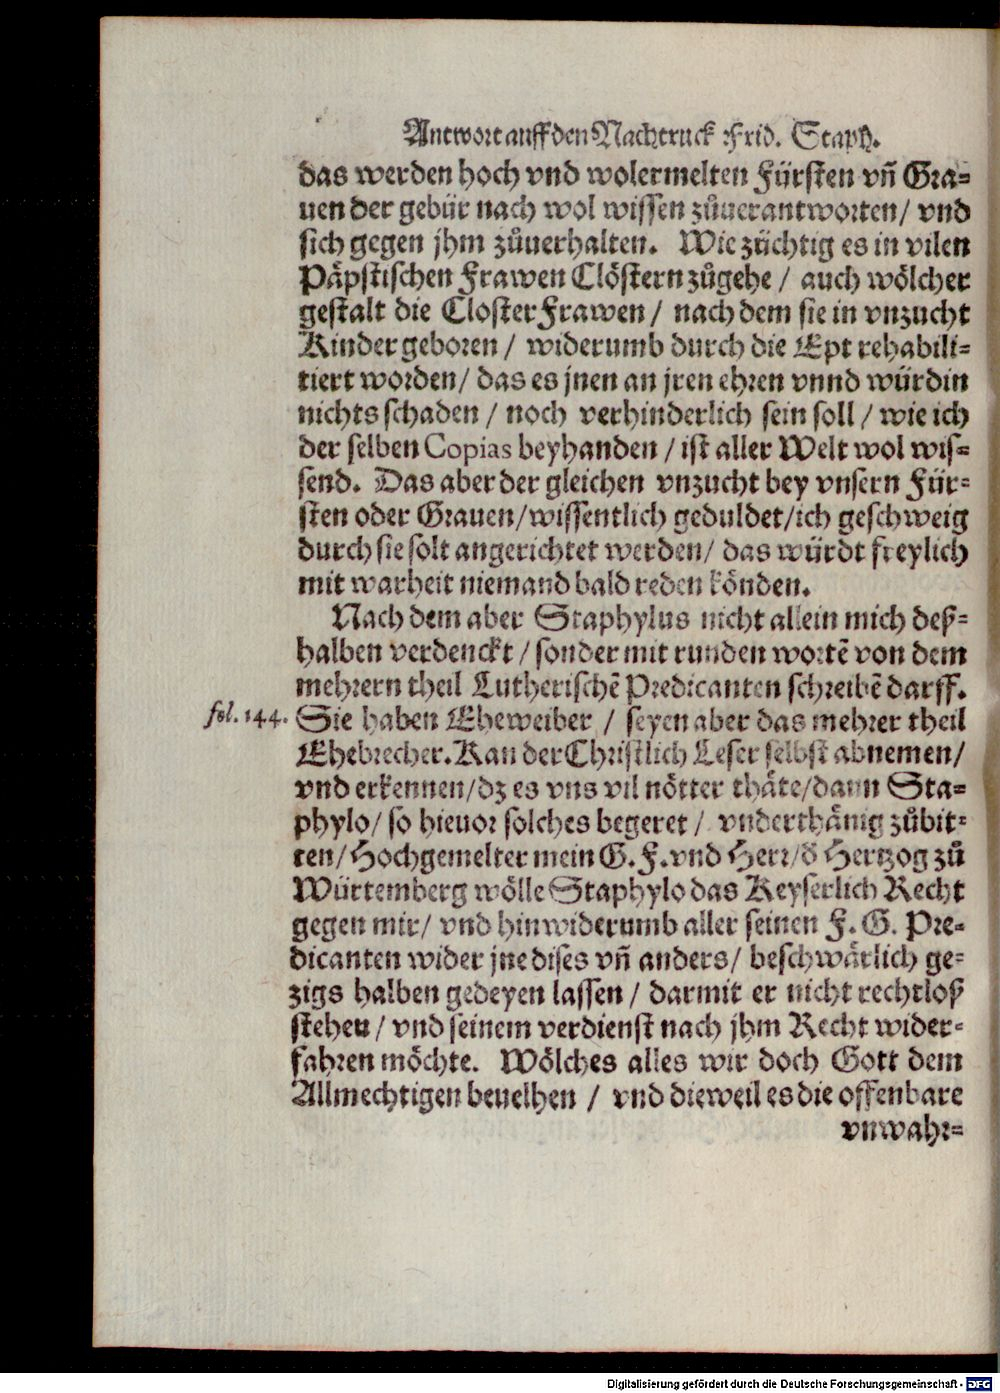 Antwort auff den Nachtruck Frid. Staph.
das werden hoch vnd wolermelten Fürsten vñ Gra⸗
uen der gebür nach wol wissen zůuerantworten/ vnd
sich gegen jhm zůuerhalten. Wie züchtig es in vilen
Päpstischen Frawen Clöstern zůgehe / auch wölcher
gestalt die Closter Frawen / nach dem sie in vnzucht
Kinder geboren / widerumb durch die Ept rehabili⸗
tiert worden/ das es jnen an jren ehren vnnd würdin
nichts schaden / noch verhinderlich sein soll / wie ich
der selben Copias beyhanden / ist aller Welt wol wis⸗
send. Das aber der gleichen vnzucht bey vnsern Für⸗
sten oder Grauen/wissentlich geduldet/ich geschweig
durch sie solt angerichtet werden/ das würdt freylich
mit warheit niemand bald reden könden.
Nach dem aber Staphylus nicht allein mich deß⸗
halben verdenckt / sonder mit runden wortẽ von dem
mehrern theil Lutherischẽ Predicanten schreibẽ darff.
fol. 144. Sie haben Eheweiber / seyen aber das mehrer theil
Ehebrecher. Kan der Christlich Leser selbst abnemen/
vnd erkennen/dz es vns vil nötter thäte/dann Sta⸗
phylo/ so hieuor solches begeret / vnderthänig zůbit⸗
ten/ Hochgemelter mein G. F. vnd Herr/ď Hertzog zů
Würtemberg wölle Staphylo das Keyserlich Recht
gegen mir/ vnd hinwiderumb aller seinen F. G. Pre⸗
dicanten wider jne dises vñ anders/ beschwärlich ge⸗
zigs halben gedeyen lassen / darmit er nicht rechtloß
stehen / vnd seinem verdienst nach jhm Recht wider⸗
fahren möchte. Wölches alles wir doch Gott dem
Allmechtigen beuelhen / vnd dieweil es die offenbare
vnwahr⸗
Digitalisierung gefördert durch die Deutsche Forschungsgemeinschaft - DFG